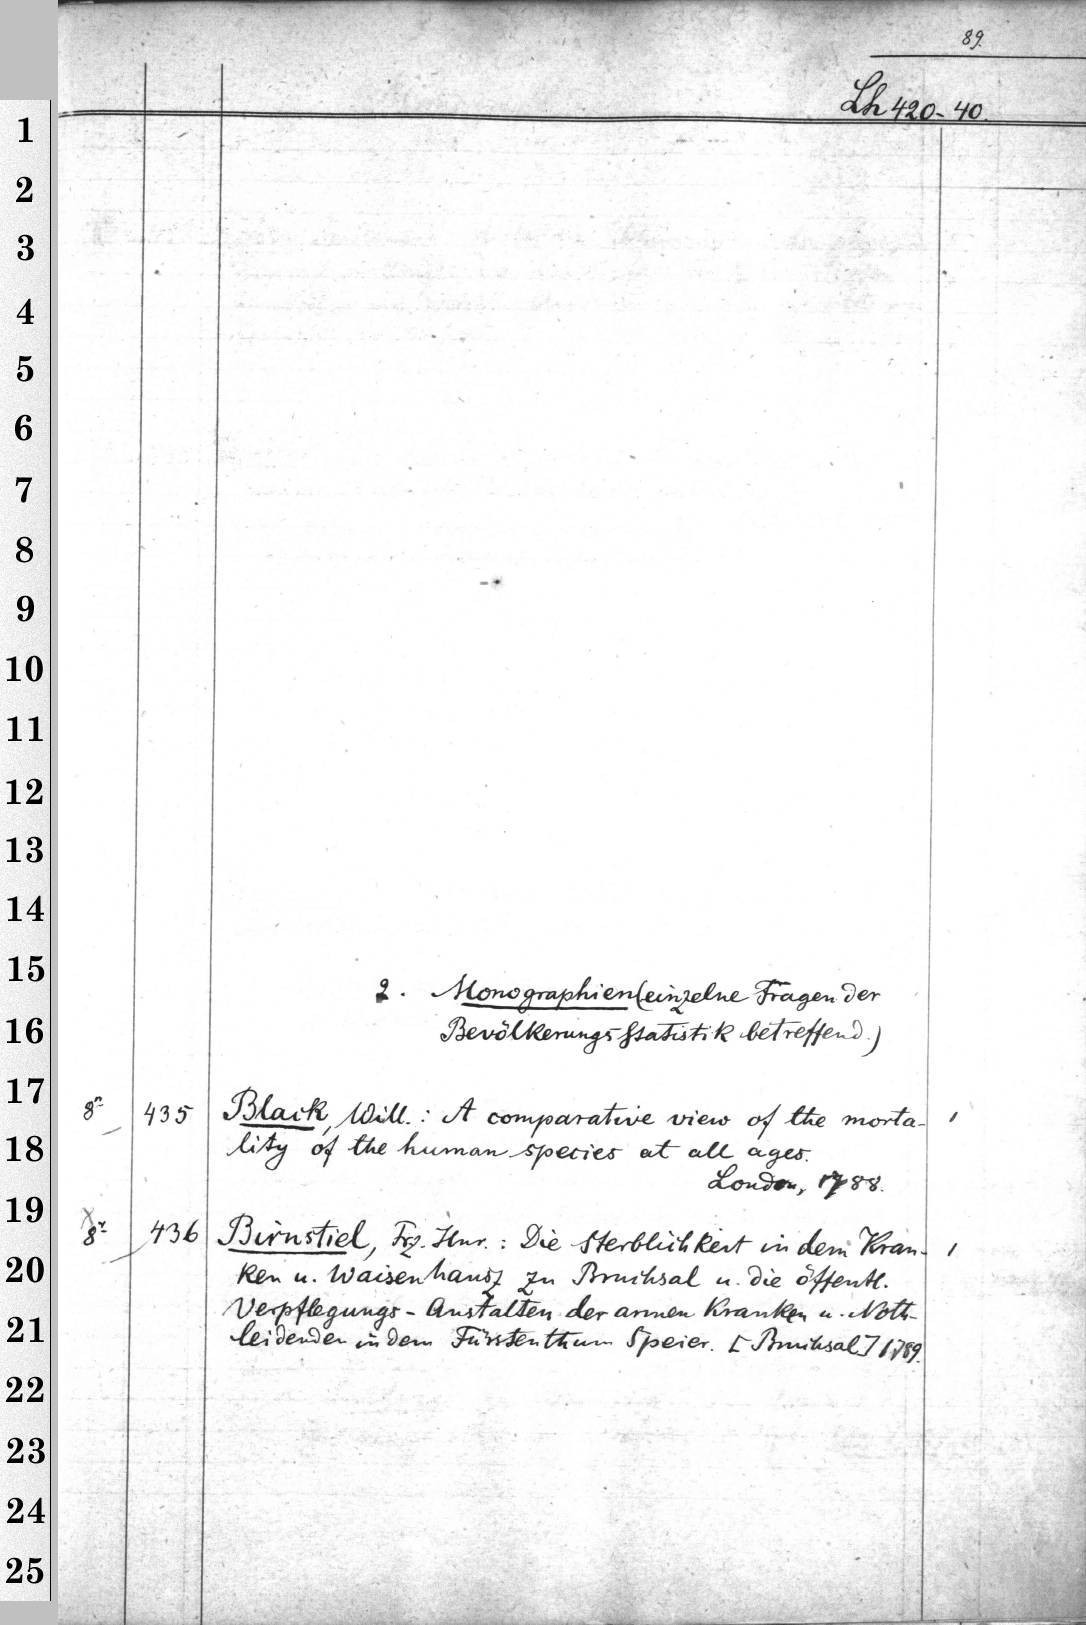 89.
Lh 420-40.
1
2
3
4
5
6
7
8
9
10
11
12
13
14
15
2. Monographien (einzelne Fragen der
16
Bevölkerungsstatistik betreffend.)
17
8° 435 Black, Will.: A comparative view of the morta- 1
18
lity of the human species at all ages.
London, 1788.
19
8° 436 Birnstiel, Frz. Hnr.: Die Sterblichkeit in dem Kran- 1
20
ken u. Waisenhausz zu Bruchsal u. die öffentl.
Verpflegungs-Anstalten der armen Kranken u. Noth-
21
leidenden in dem Fürstenthum Speier. [Bruchsal] 1789.
22
23
24
25